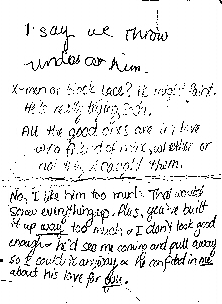 I say we throw
undies at him.
X-men or black lace? He might faint.
He's really trying
All the good ones are in love
w/ a friend of mine, whether or
not them.
No, I like him too much. That would
screw everything up. Plus, you've built
it up way too much, & I don't look good
enough & he'd see me coming and pull away
so it couldn't anyway, & he confided in me
about his love for you.